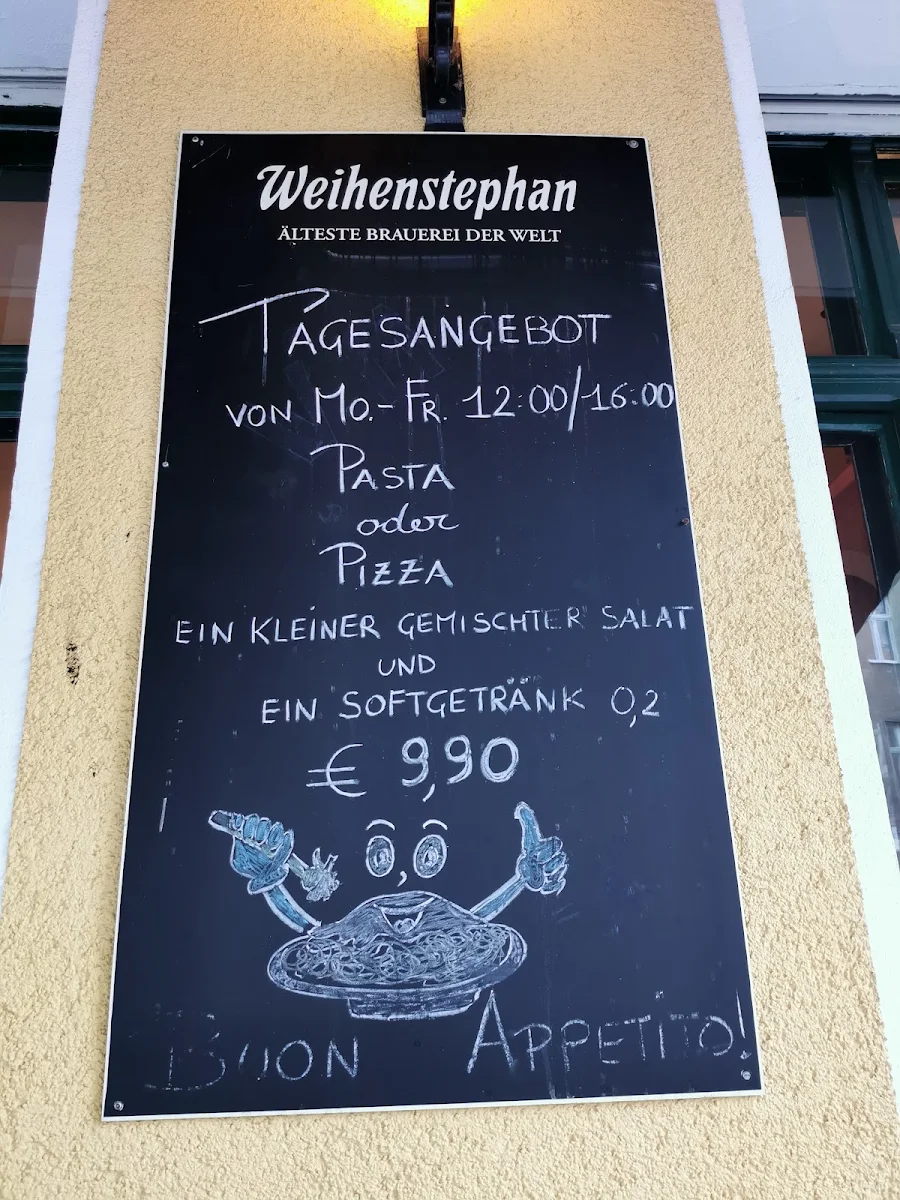 Weihenstephan
ÄLTESTE BRAUEREI DER WELT
TAGESANGEBOT
VON MO.-FR. 12:00/16:00
PASTA
oder
PIZZA
EIN KLEINER GEMISCHTER SALAT
UND
EIN SOFTGETRÄNK 0,2
€ 9,90
BUON APPETITO!